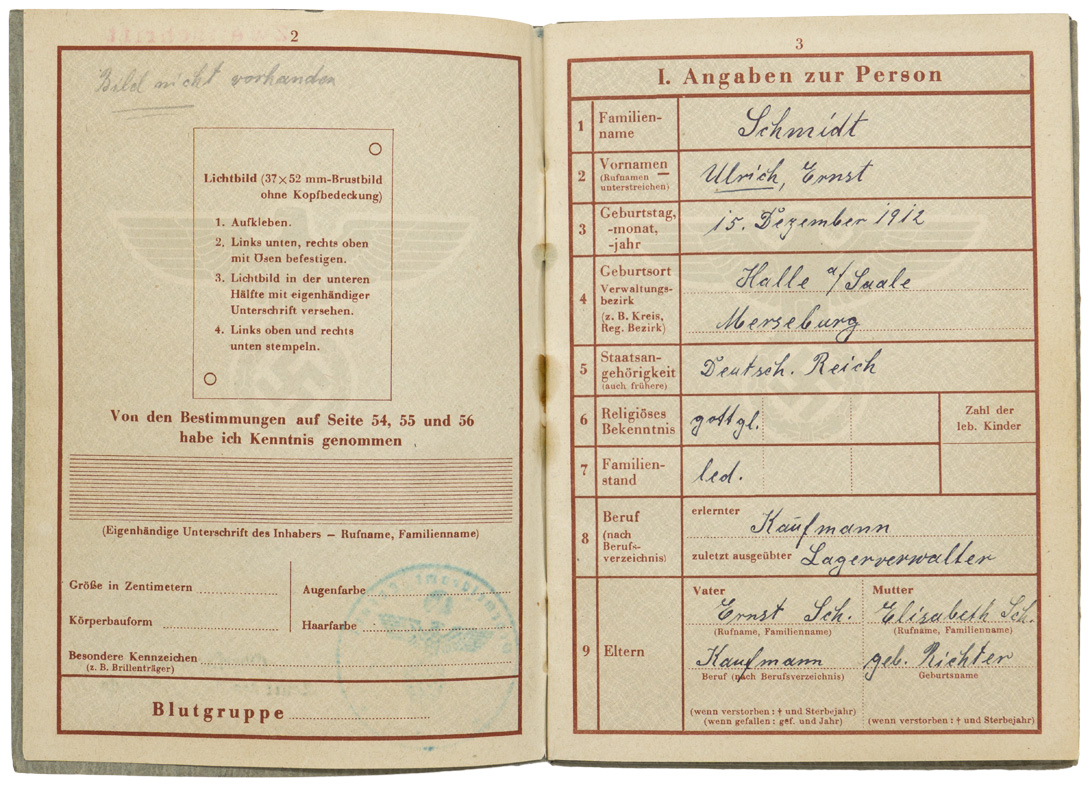 2
Bild nicht vorhanden
Lichtbild (37×52 mm-Brustbild
ohne Kopfbedeckung)
1. Aufkleben.
2. Links unten, rechts oben
mit Ösen befestigen.
3. Lichtbild in der unteren
Hälfte mit eigenhändiger
Unterschrift versehen.
4. Links oben und rechts
unten stempeln.
Von den Bestimmungen auf Seite 54, 55 und 56
habe ich Kenntnis genommen
(Eigenhändige Unterschrift des Inhabers – Rufname, Familienname)
Größe in Zentimetern
Augenfarbe
Körperbauform
Haarfarbe
Besondere Kennzeichen
(z. B. Brillenträger)
Blutgruppe
3
I. Angaben zur Person
1 Familien-
name
Schmidt
2 Vornamen
(Rufnamen
unterstreichen)
Ulrich, Ernst
3 Geburtstag,
-monat,
-jahr
15. Dezember 1912
4 Geburtsort
Verwaltungs-
bezirk
(z. B. Kreis,
Reg. Bezirk)
Halle a/Saale
Merseburg
5 Staatsan-
gehörigkeit
(auch frühere)
Deutsch. Reich
6 Religiöses
Bekenntnis
gottgl.
Zahl der
leb. Kinder
7 Familien-
stand
led.
8 Beruf
(nach
Berufs-
verzeichnis)
erlernter
Kaufmann
zuletzt ausgeübter Lagerverwalter
9 Eltern
Vater
Ernst Sch.
(Rufname, Familienname)
Kaufmann
Beruf (nach Berufsverzeichnis)
(wenn verstorben: † und Sterbejahr)
(wenn gefallen: gef. und Jahr)
Mutter
Elisabeth Sch.
(Rufname, Familienname)
geb. Richter
Geburtsname
(wenn verstorben: † und Sterbejahr)